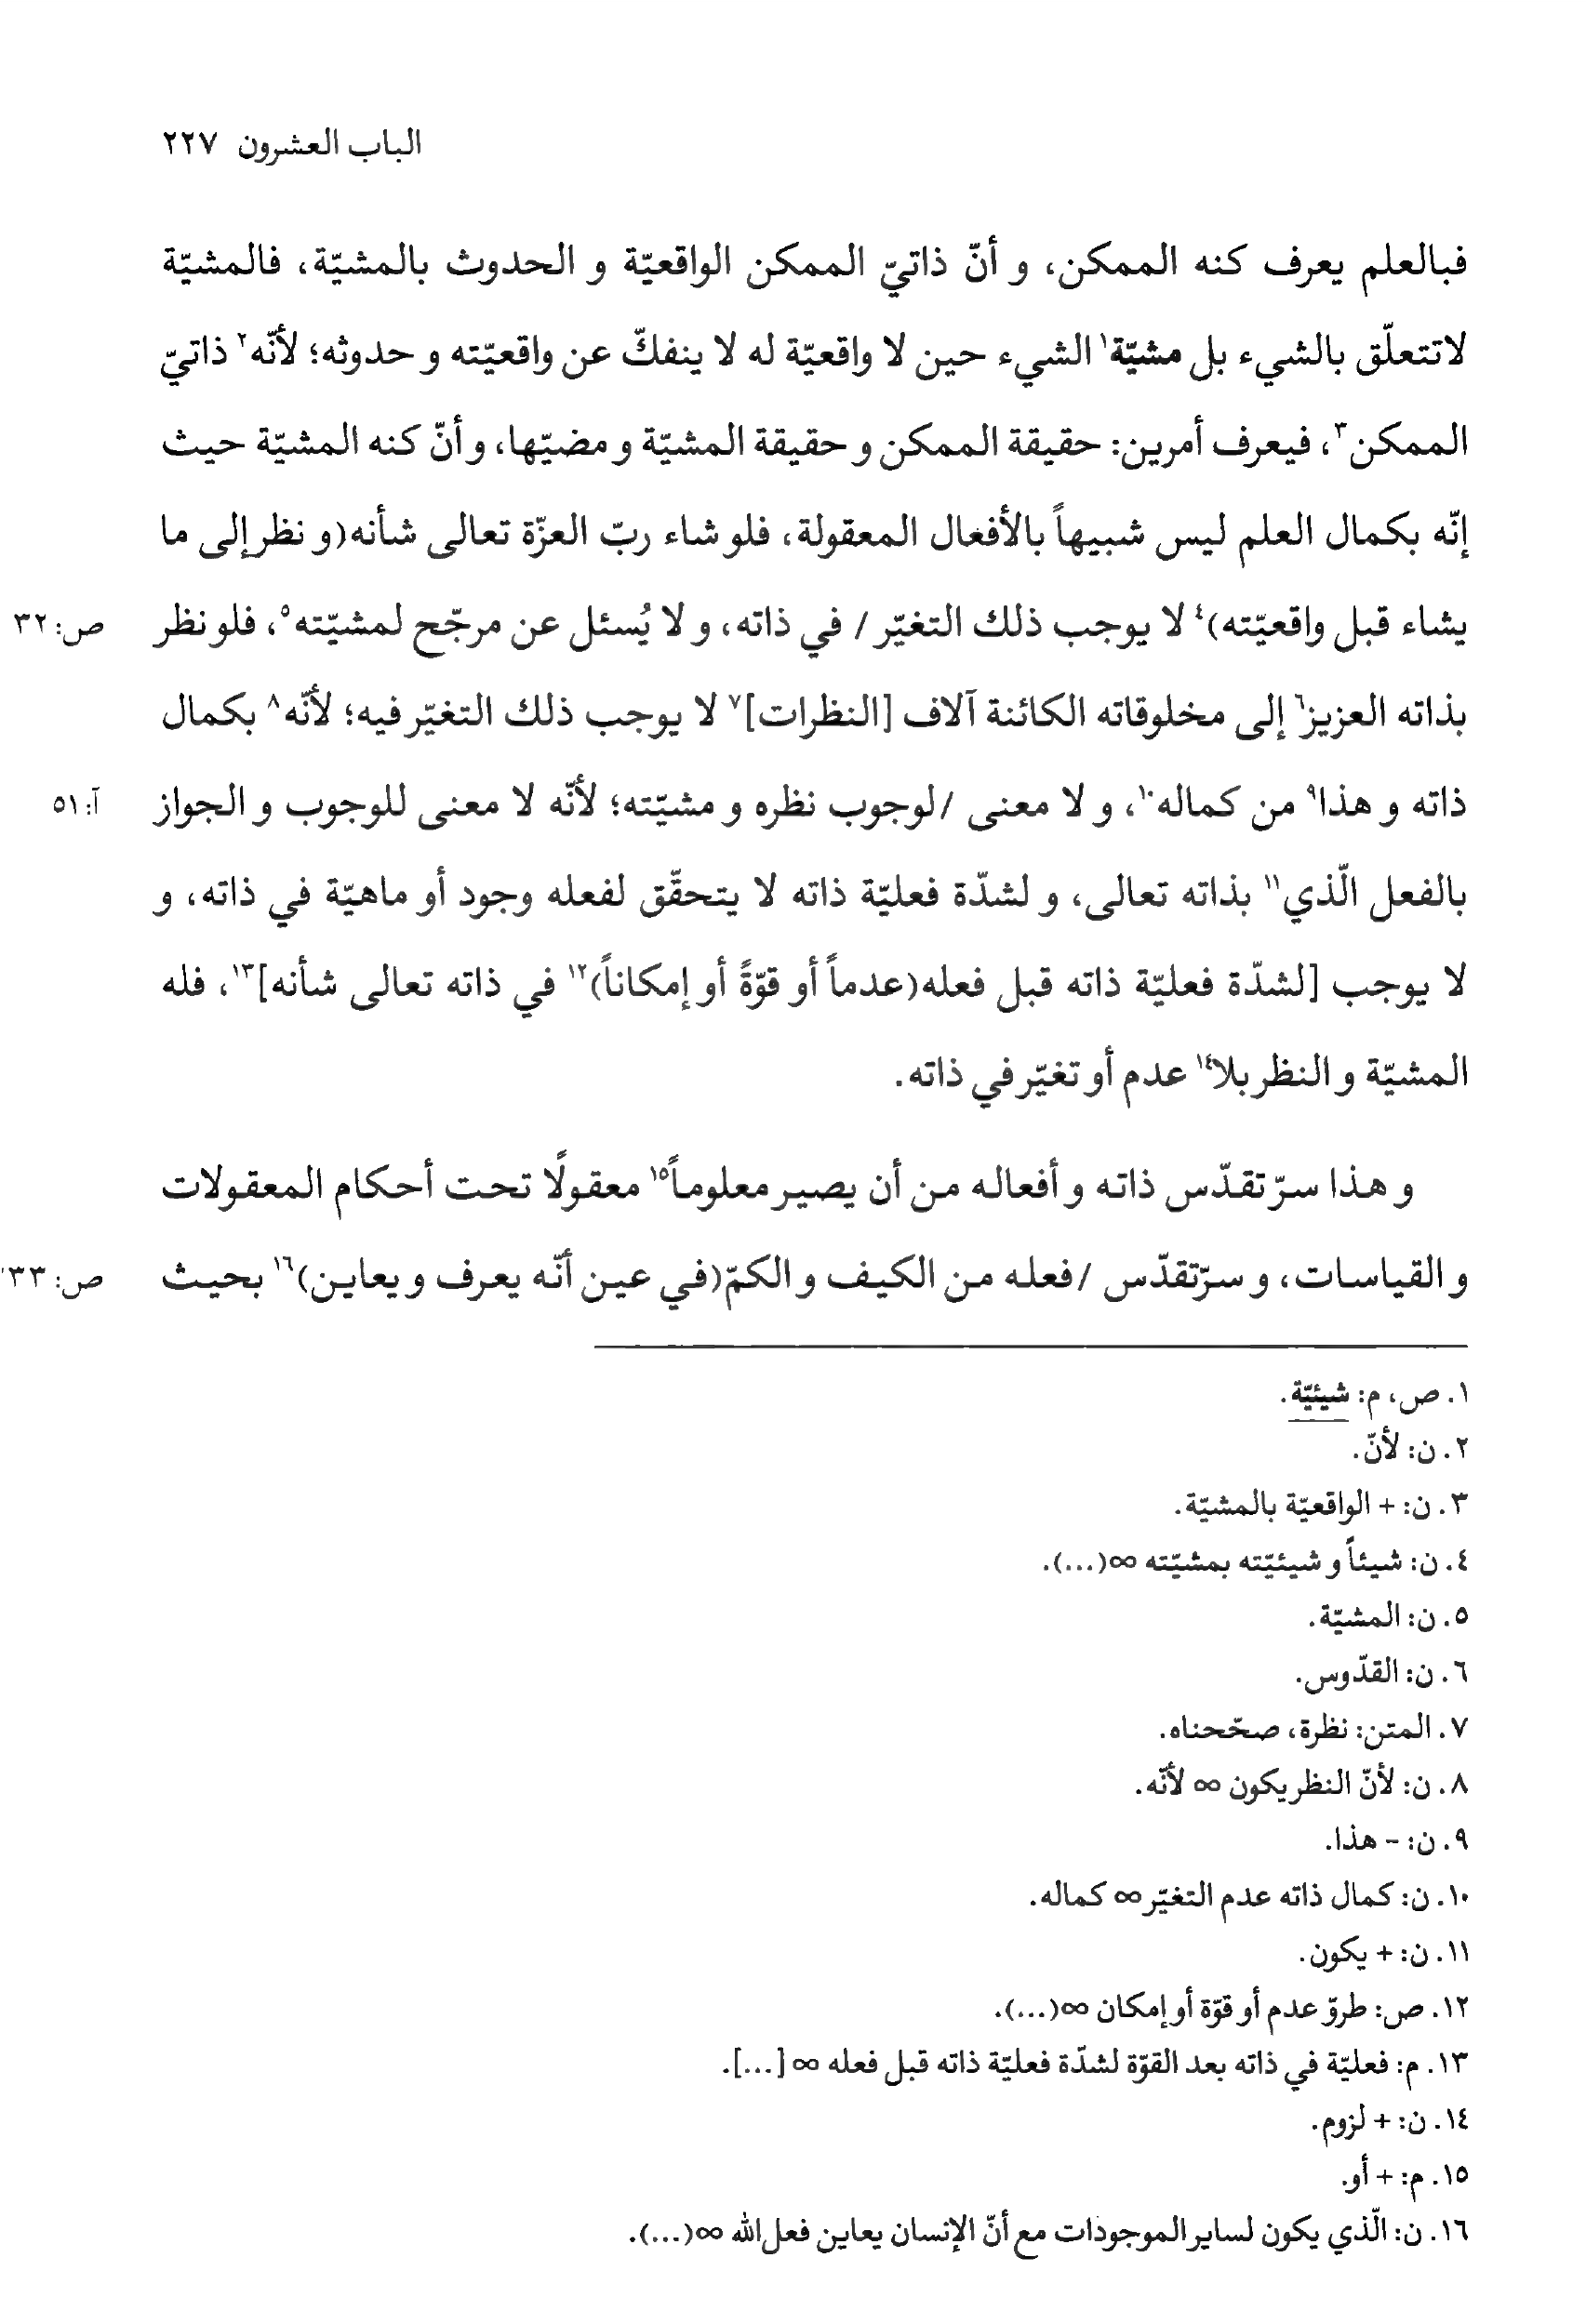 الباب العشرون ٢٢٧
فبالعلم يعرف كنه الممكن، و أنّ ذاتيّ الممكن الواقعيّة و الحدوث بالمشيّة، فالمشيّة
لاتتعلّق بالشيء بل مشيّة١ الشيء حين لا واقعيّة له لا ينفكّ عن واقعيّته و حدوثه؛ لأنّه٢ ذاتيّ
الممكن٣، فيعرف أمرين: حقيقة الممكن و حقيقة المشيّة و مضيّها، و أنّ كنه المشيّة حيث
إنّه بكمال العلم ليس شبيهاً بالأفعال المعقولة، فلو شاء ربّ العزّة تعالى شأنه(و نظر إلى ما
يشاء قبل واقعيّته)٤ لا يوجب ذلك التغيّر / في ذاته، و لا يُسئل عن مرجّح لمشيّته٥، فلو نظر ص: ٣٢
بذاته العزيز٦ إلى مخلوقاته الكائنة آلاف [النظرات]٧ لا يوجب ذلك التغيّر فيه؛ لأنّه٨ بكمال
ذاته و هذا٩ من كماله١٠، و لا معنى /لوجوب نظره و مشيّته؛ لأنّه لا معنى للوجوب و الجواز آ: ٥١
بالفعل الّذي١١ بذاته تعالى، و لشدّة فعليّة ذاته لا يتحقّق لفعله وجود أو ماهيّة في ذاته، و
لا يوجب [لشدّة فعليّة ذاته قبل فعله(عدماً أو قوّةً أو إمكاناً)١٢ في ذاته تعالى شأنه]١٣، فله
المشيّة و النظر بلا١٤ عدم أو تغيّر في ذاته.
و هذا سرّ تقدّس ذاته و أفعاله من أن يصير معلوماً١٥ معقولًا تحت أحكام المعقولات
و القياسات، و سرّتقدّس /فعله من الكيف و الكمّ(في عين أنّه يعرف و يعاين)١٦ بحيث ص: ٣٣
١. ص، م: شيئيّة.
٢. ن: لأنّ.
٣. ن: + الواقعيّة بالمشيّة.
٤. ن: شيئاً و شيئيّته بمشيّته ∞(...).
٥. ن: المشيّة.
٦. ن: القدّوس.
٧. المتن: نظرة، صحّحناه.
٨. ن: لأنّ النظر يكون ∞ لأنّه.
٩. ن: - هذا.
١٠. ن: كمال ذاته عدم التغيّر ∞ كماله.
١١. ن: + يكون.
١٢. ص: طروّ عدم أو قوّة أو إمكان ∞(...).
١٣. م: فعليّة في ذاته بعد القوّة لشدّة فعليّة ذاته قبل فعله ∞ [...].
١٤. ن: + لزوم.
١٥. م: + أو.
١٦. ن: الّذي يكون لساير الموجودات مع أنّ الإنسان يعاين فعل الله ∞(...).